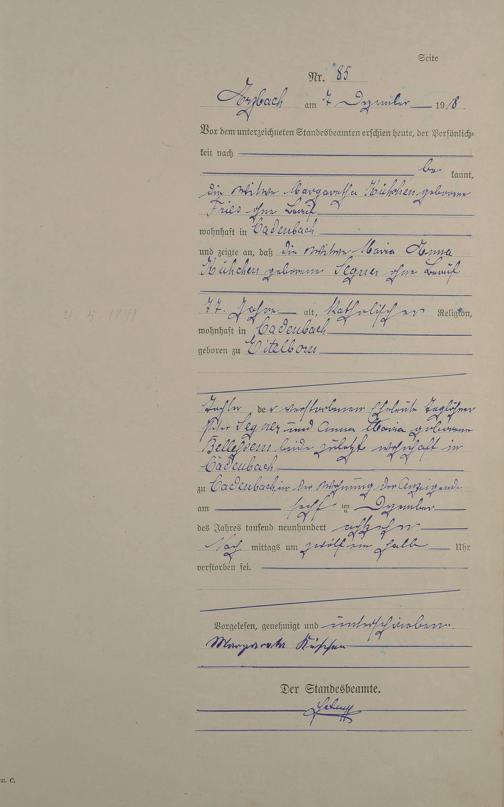 Seite
Nr. 85
Arzbach am 7 Dezember 1918.
Vor dem unterzeichneten Standesbeamten erschien heute, der Persönlich-
keit nach
be kannt,
die Witwe Margaretha Küchchen geborene
Fries ohne Beruf
wohnhaft in Cadenbach
und zeigte an, daß die Witwe Maria Anna
geborene ohne Beruf
77 Jahre alt, katholischer Religion,
wohnhaft in Cadenbach
geboren zu Eitelborn
Tochter der verstorbenen Eheleute Taglöhner
Peter und Anna Maria geborene
beide zuletzt wohnhaft in
Cadenbach
zu Cadenbach in der Wohnung der Anzeigende
am sechs ten Dezember
des Jahres tausend neunhundert achtzehn
Nach mittags um zwölf ein halb Uhr
verstorben sei.
Vorgelesen, genehmigt und unterschrieben.
Margareta
Der Standesbeamte.
4. 5. 1841
C.